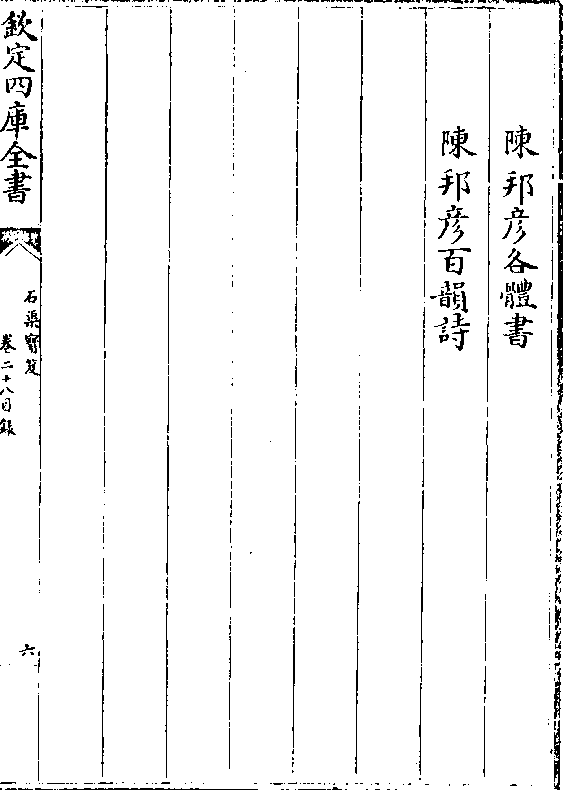 陳邦彦各體書
陳邦彦百韻詩
欽定四庫全書
石渠寶笈
卷二十八目錄
六